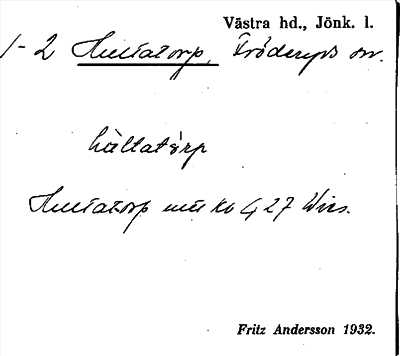 Västra hd., Jönk. l.
1-2 Hultatorp, Fröderyds sn.
hùltatårp
Hultatorp utu kv 4 27 Wies.
Fritz Andersson 1932.